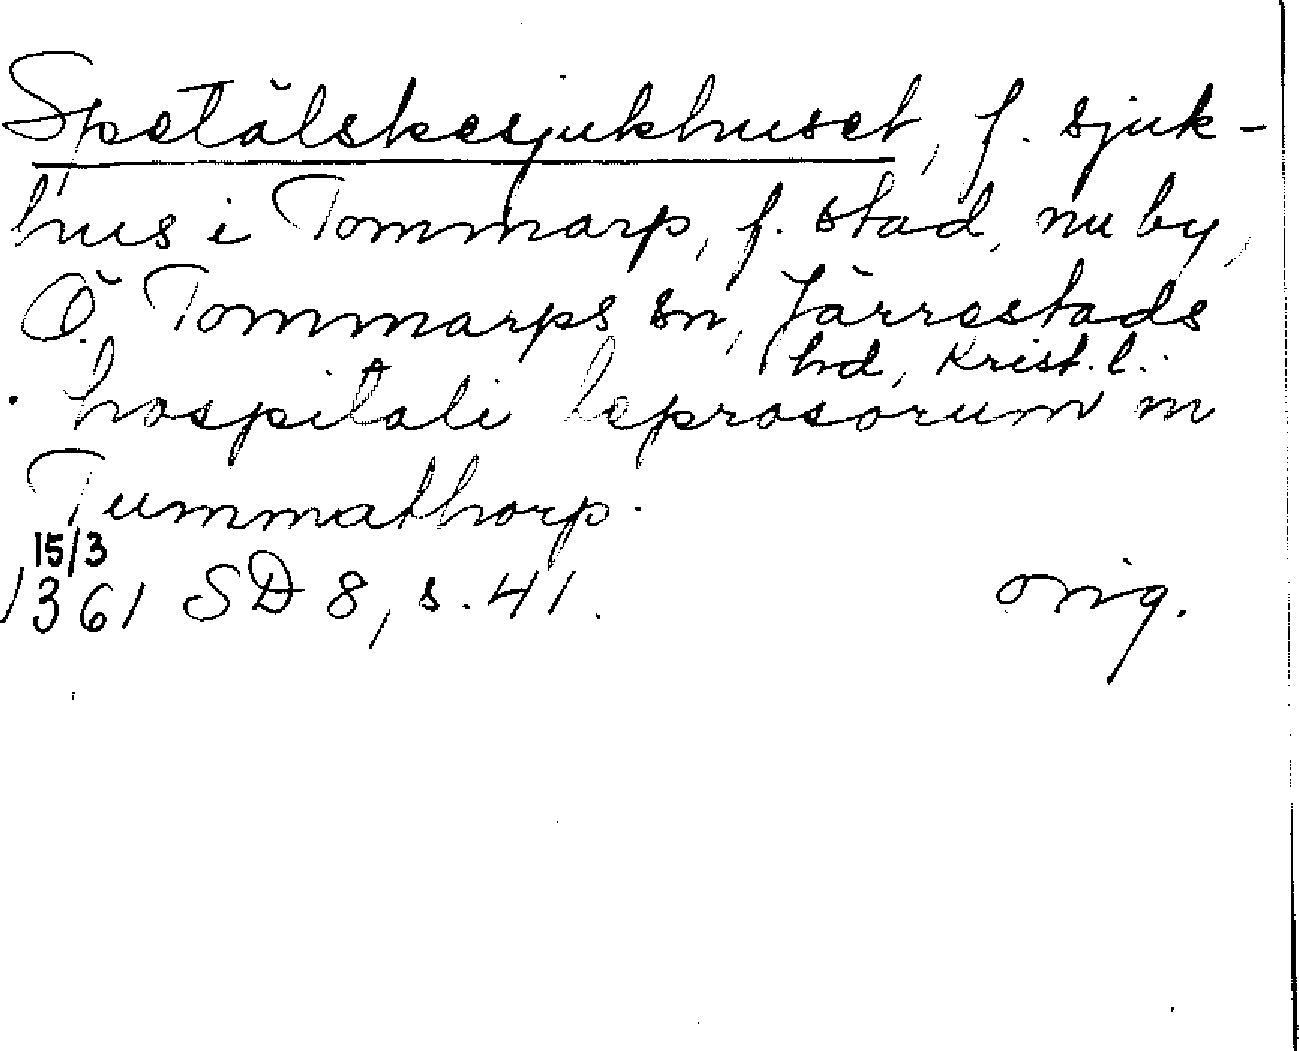 Spetälskesjukhuset, f. sjuk-
hus i Tommarp, f. stad, nu by,
Ö. Tommarps sn, Järrestads
hd, Krist. l.
hospitali leprosorum in
Tummathorp.
15/3
1361 SD 8, s. 41. orig.